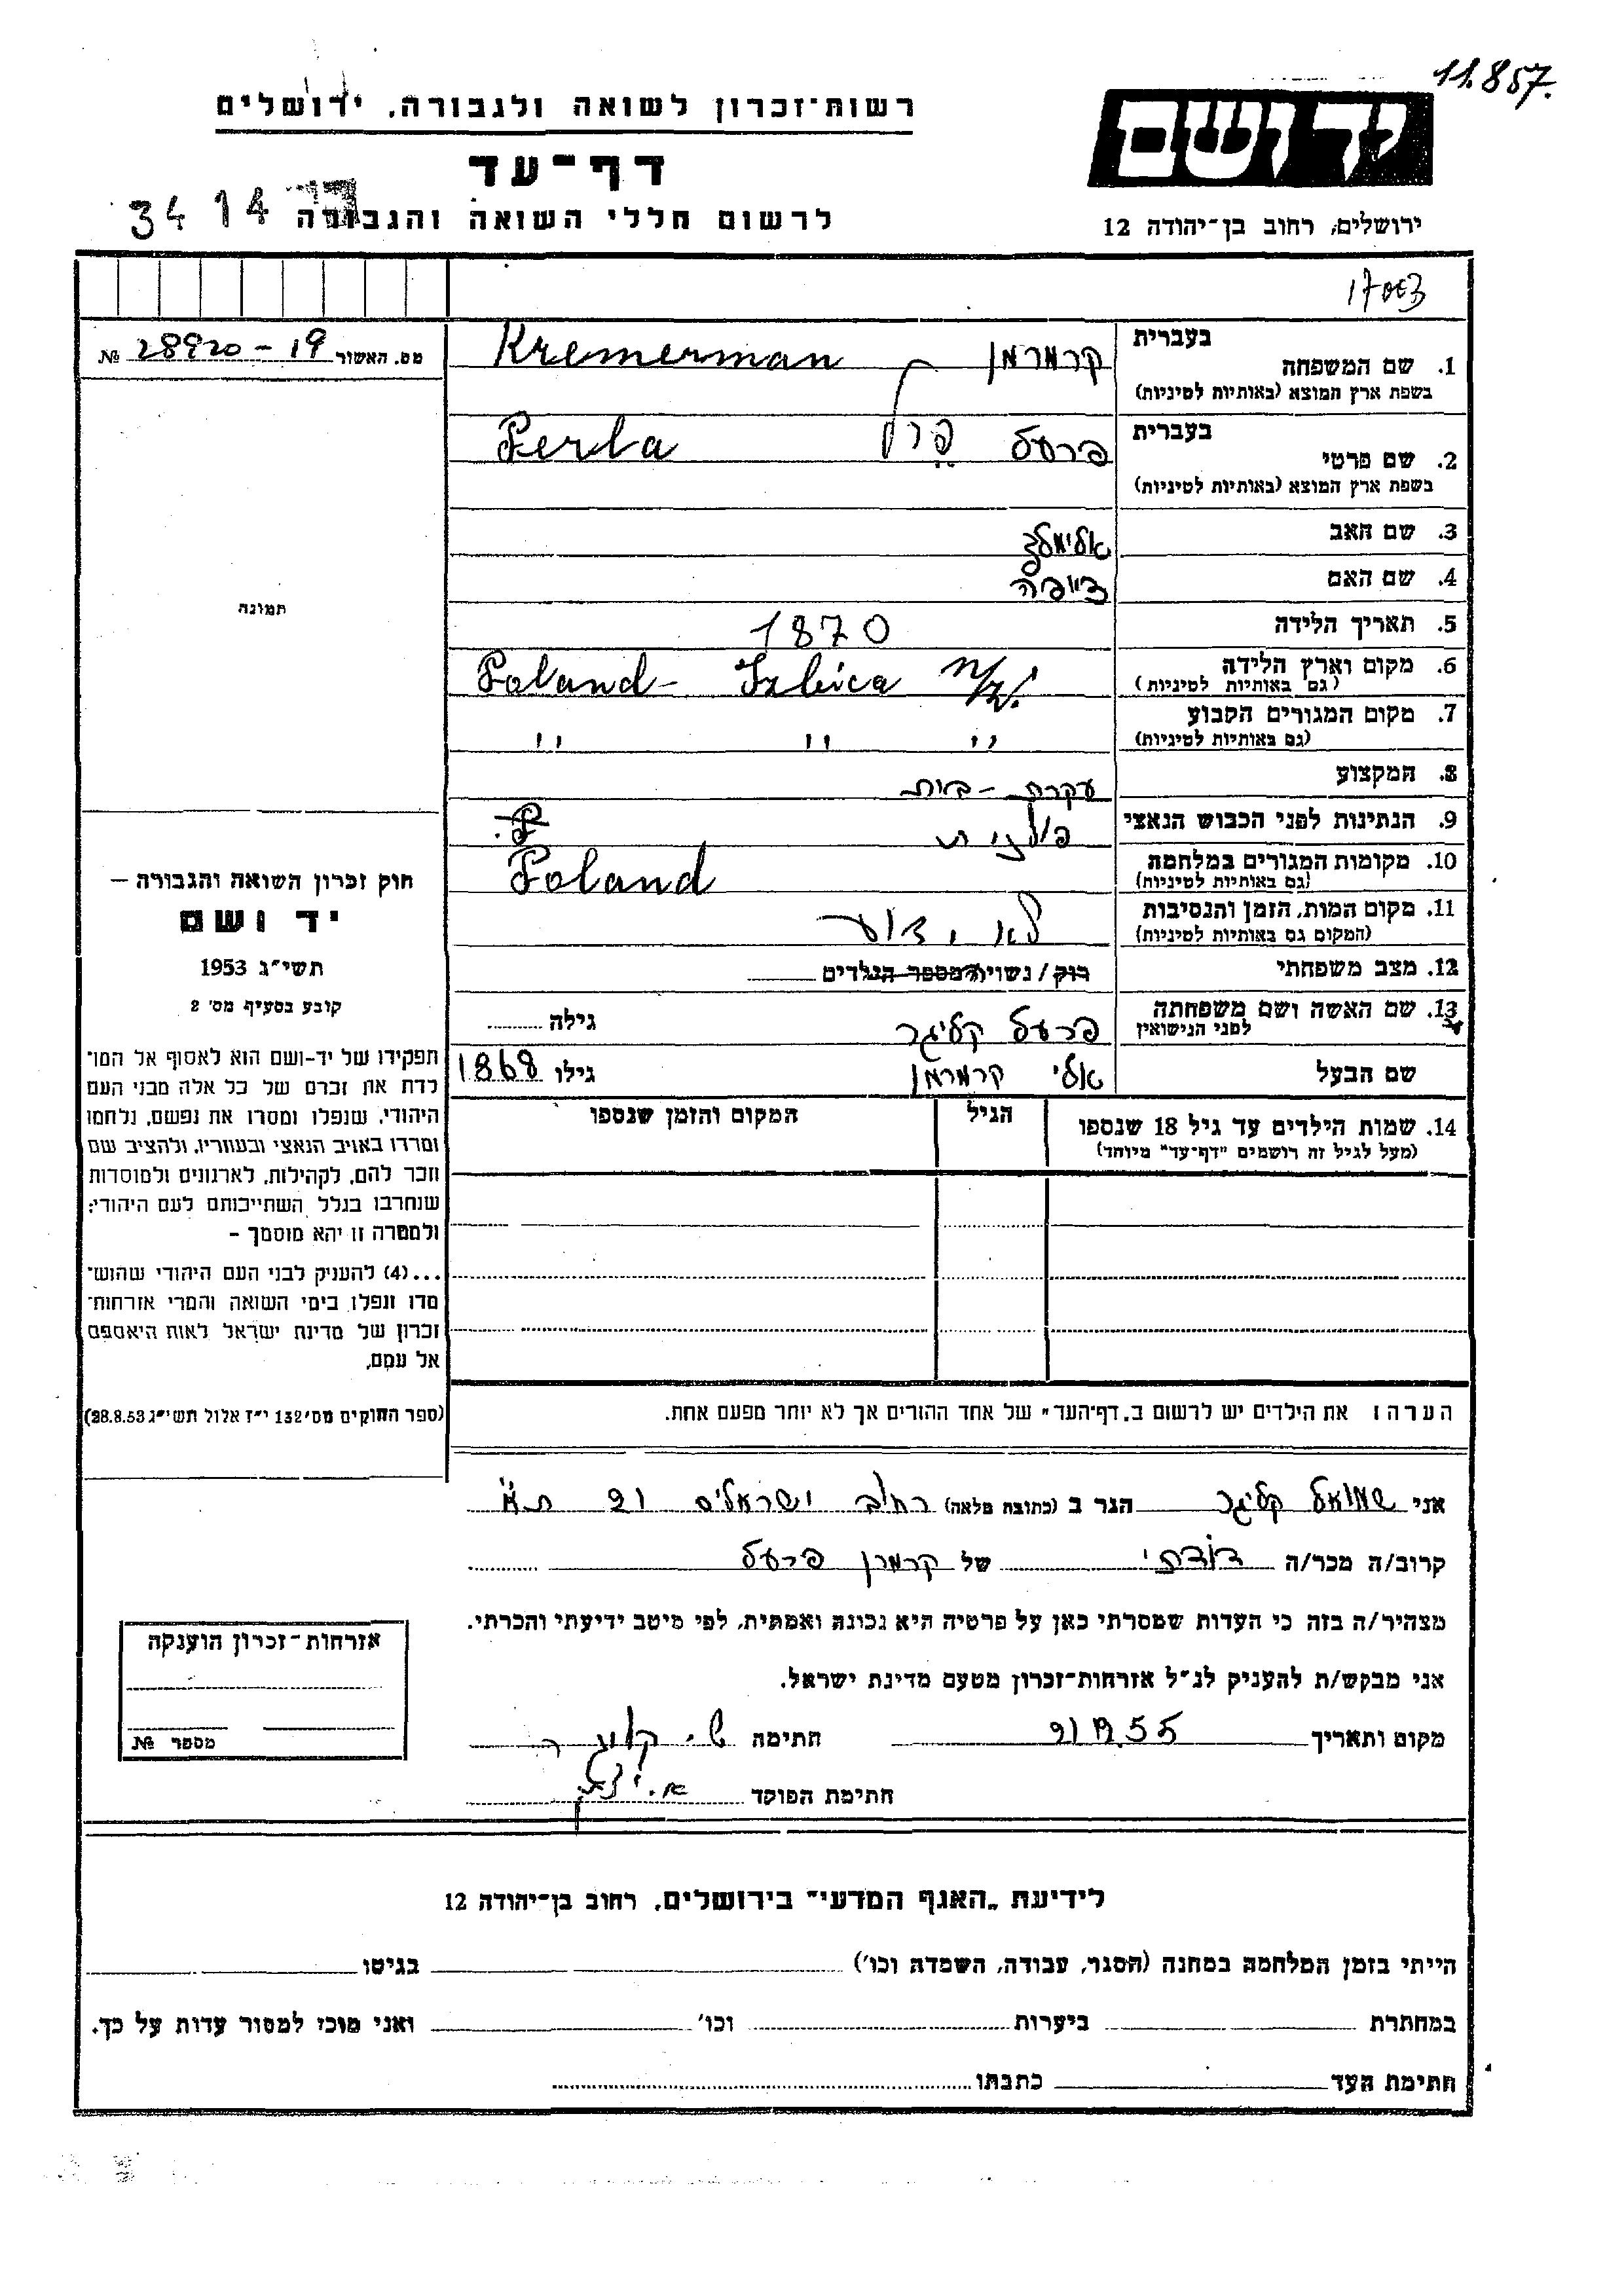 11.857.
רשות־זכרון לשואה ולגבורה, ירושלים
יד ושם
דף־עד
לרשום חללי השואה והגבורה
34 14
ירושלים, רחוב בן־יהודה 12
מס. האשור 28920-19 №
בעברית
1. שם המשפחה
בשפת ארץ המוצא (באותיות לטיניות)
קרמרמן Kremerman
בעברית
2. שם פרטי
בשפת ארץ המוצא (באותיות לטיניות)
פרעל פרל Perla
3. שם האב אלימלך
4. שם האם
5. תאריך הלידה 1870
6. מקום וארץ הלידה
(גם באותיות לטיניות)
Poland - Izbica n/W.
7. מקום המגורים הקבוע
(גם באותיות לטיניות)
" " " "
8. המקצוע עקרת-בית
9. הנתינות לפני הכבוש הנאצי פולנית P.
10. מקומות המגורים במלחמה
(גם באותיות לטיניות)
Poland
11. מקום המות, הזמן והנסיבות
(המקום גם באותיות לטיניות)
לא ידוע
12. מצב משפחתי רוק / נשוי/ מספר הילדים
13. שם האשה ושם משפחתה
לפני הנישואין
פרעל קליגר גילה
שם הבעל אלי קרמרמן גילו 1868
14. שמות הילדים עד גיל 18 שנספו
(מעל לגיל זה רושמים "דף־עד" מיוחד)
הגיל
המקום והזמן שנספו
הערה: את הילדים יש לרשום ב„דף־העד" של אחד ההורים אך לא יותר מפעם אחת.
תמונה
חוק זכרון השואה והגבורה –
יד ושם
תשי"ג 1953
קובע בסעיף מס' 2
תפקידו של יד-ושם הוא לאסוף אל המו־
לדת את זכרם של כל אלה מבני העם
היהודי, שנפלו ומסרו את נפשם, נלחמו
ומרדו באויב הנאצי ובעוזריו, ולהציב שם
וזכר להם, לקהילות, לארגונים ולמוסדות
שנחרבו בגלל השתייכותם לעם היהודי;
ולמטרה זו יהא מוסמך –
...(4) להעניק לבני העם היהודי שהוש־
מדו ונפלו בימי השואה והמרי אזרחות־
זכרון של מדינת ישראל לאות היאספם
אל עמם.
(ספר החוקים מס' 132 י"ז אלול תשי"ג 28.8.53)
אני שמואל קליגר הגר ב (כתובת מלאה) רחוב ישראליס 21 ת"א
קרוב/ה מכר/ה דודתי של קרמרן פרעל
מצהיר/ה בזה כי העדות שמסרתי כאן על פרטיה היא נכונה ואמתית, לפי מיטב ידיעתי והכרתי.
אני מבקש/ת להעניק לנ"ל אזרחות־זכרון מטעם מדינת ישראל.
מקום ותאריך חתימה ש. קליגר
חתימת הפוקד
אזרחות־זכרון הוענקה
מספר №
לידיעת „האגף המדעי" בירושלים, רחוב בן־יהודה 12
הייתי בזמן המלחמה במחנה (הסגר, עבודה, השמדה וכו') בגיטו
במחתרת ביערות וכו' ואני מוכן למסור עדות על כך.
חתימת העד כתבתו